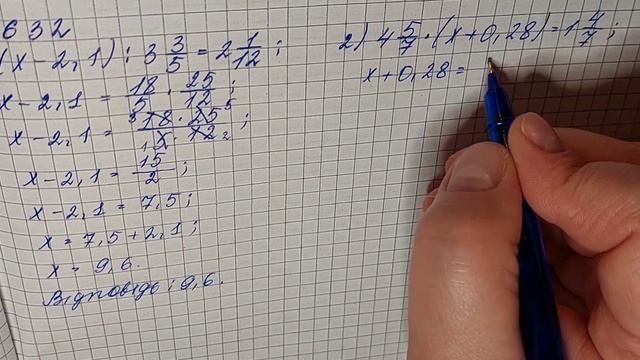 632
(x-2,1) : 3 3/5 = 2 1/12 ;
x-2,1 = 18/5 · 25/12 ;
x-2,1 = 3 18 · 25 5 / 1 5 · 12 2 ;
x-2,1 = 15/2 ;
x-2,1 = 7,5 ;
x = 7,5 + 2,1 ;
x = 9,6.
Відповідь: 9,6.
2) 4 5/7 · (x+0,28) = 1 4/7 ;
x+0,28 =